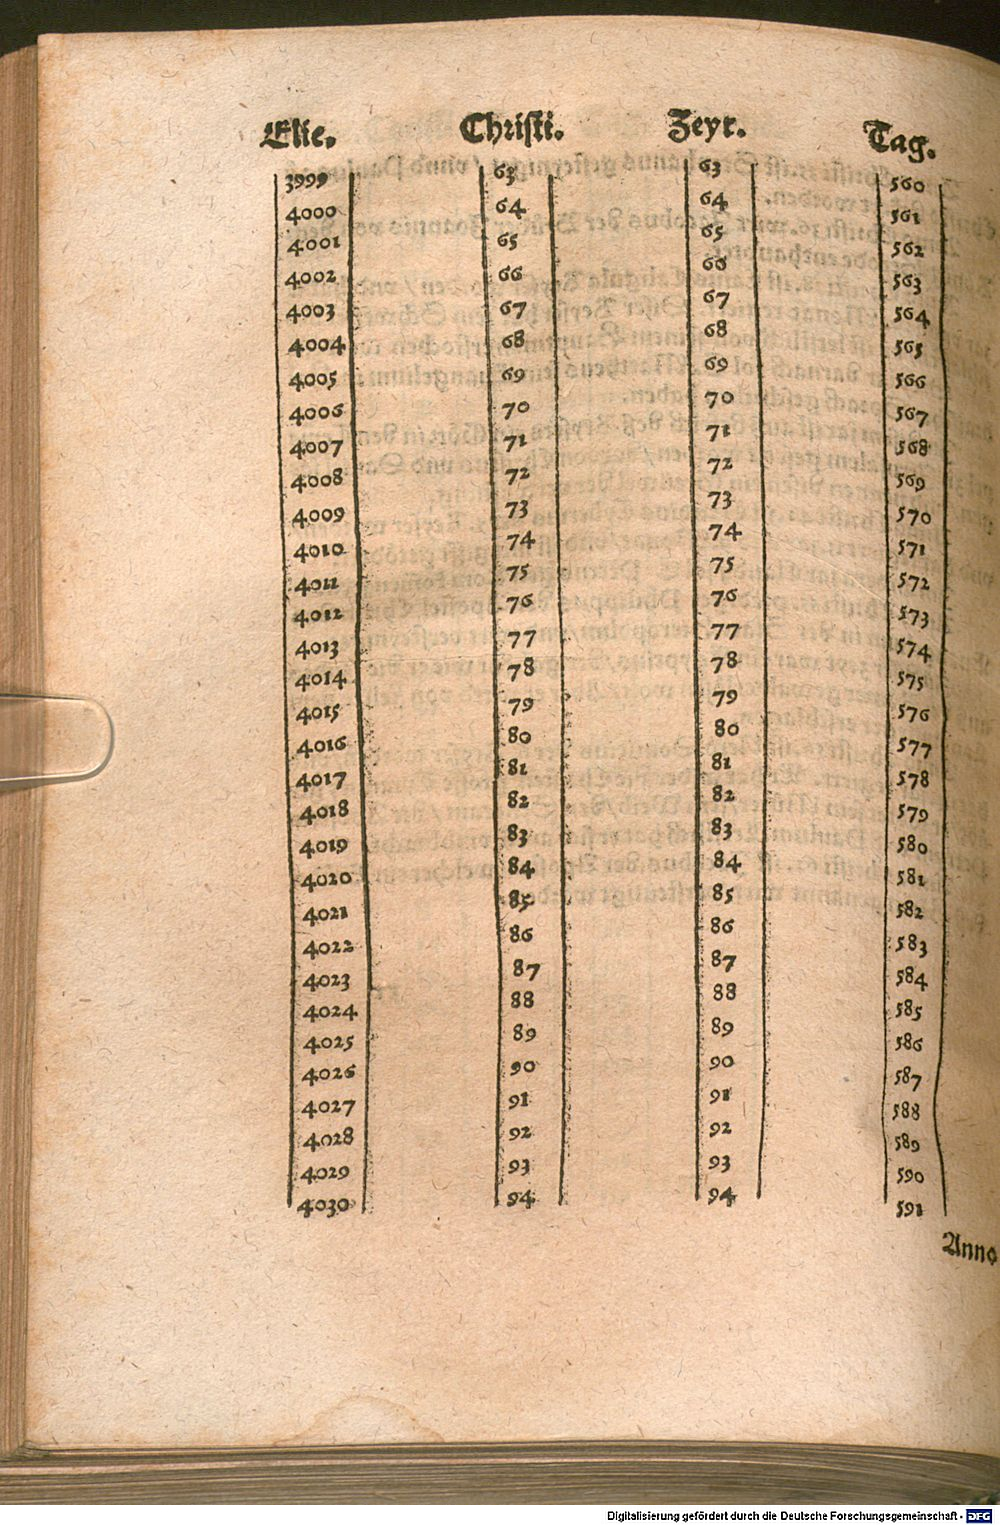 Elie. Christi. Zeyt. Tag.
3999 63 63 560
4000 64 64 561
4001 65 65 562
4002 66 66 563
4003 67 67 564
4004 68 68 565
4005 69 69 566
4006 70 70 567
4007 71 71 568
4008 72 72 569
4009 73 73 570
4010 74 74 571
4011 75 75 572
4012 76 76 573
4013 77 77 574
4014 78 78 575
4015 79 79 576
4016 80 80 577
4017 81 81 578
4018 82 82 579
4019 83 83 580
4020 84 84 581
4021 85 85 582
4022 86 86 583
4023 87 87 584
4024 88 88 585
4025 89 89 586
4026 90 90 587
4027 91 91 588
4028 92 92 589
4029 93 93 590
4030 94 94 591
Anno
Digitalisierung gefördert durch die Deutsche Forschungsgemeinschaft - DFG